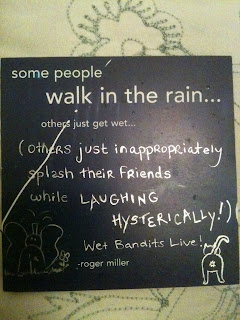 some people
walk in the rain...
others just get wet...
(others just inappropriately
splash their friends
while LAUGHING
HYSTERICALLY!)
Wet Bandits Live!
-roger miller